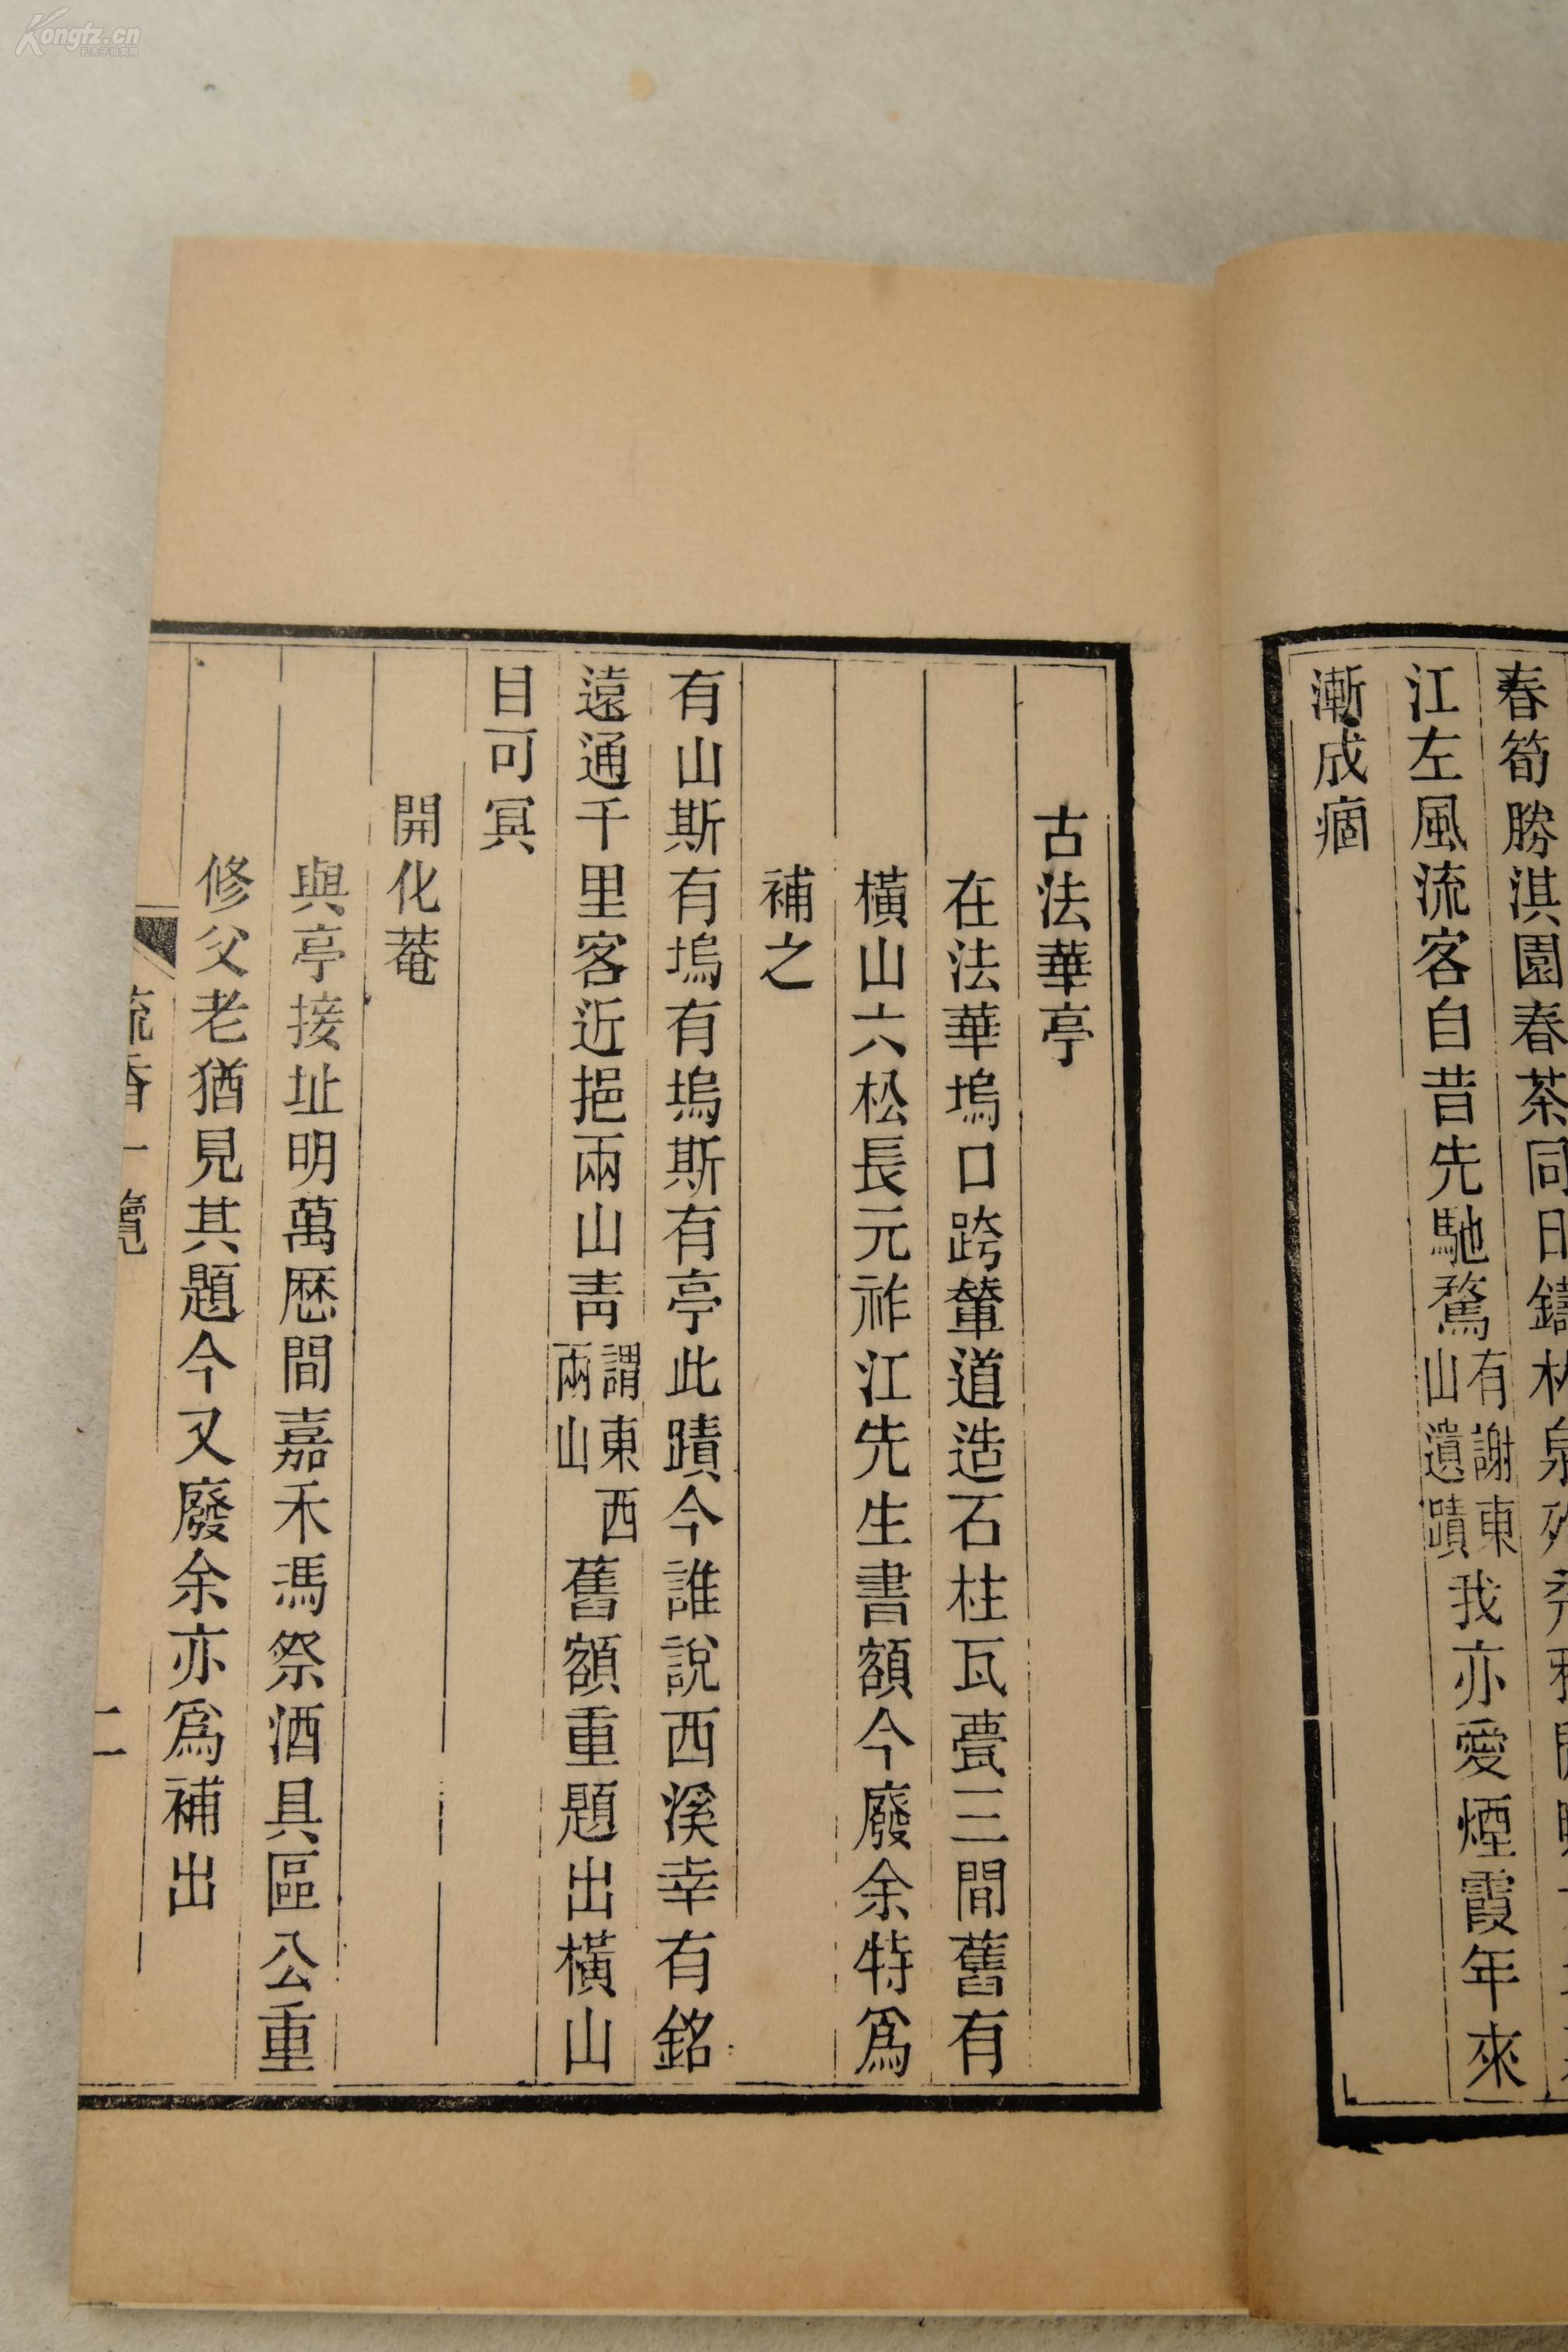 春筍勝淇園春茶同日鑄林泉
江左風流客自昔先馳騖有謝東山遺蹟我亦愛煙霞年來
漸成痼
古法華亭
在法華塢口跨輦道造石柱瓦甍三間舊有
橫山六松長元祚江先生書額今廢余特爲
補之
有山斯有塢有塢斯有亭此蹟今誰說西溪幸有銘
遠通千里客近挹兩山靑謂東西兩山舊額重題出橫山
目可冥
開化菴
與亭接址明萬厯間嘉禾馮祭酒具區公重
修父老猶見其題今又廢余亦爲補出
流香一覽
二
Kongfz.cn